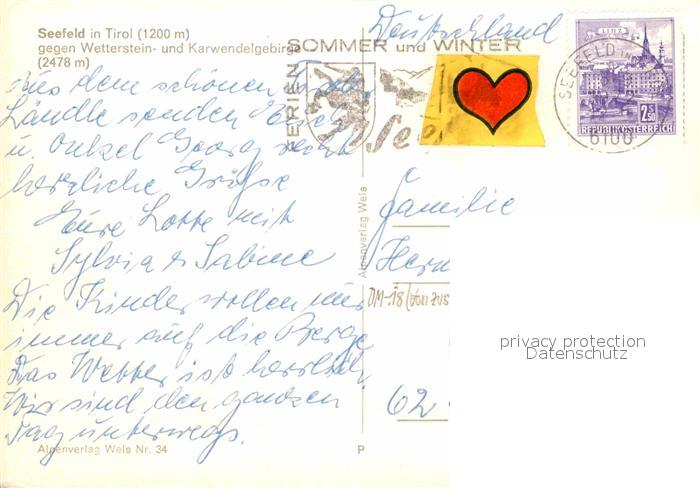 Seefeld in Tirol (1200 m)
gegen Wetterstein- und Karwendelgebirge
(2478 m)
Aus dem schönen
Ländle senden Euch
u. Onkel Georg recht
herzliche Grüße
Eure Lotte mit
Sylvia & Sabine
Die Kinder wollen nur
immer auf die Berge
Das Wetter ist herrlich.
Wir sind den ganzen
Tag unterwegs.
Alpenverlag Wels Nr. 34
P
Alpenverlag Wels
Deutschland
FERIEN SOMMER und WINTER
See
SEEFELD IN
6100
LINZ
2.50
REPUBLIK ÖSTERREICH
Familie
Herm
DM -.18 (von zus
62
privacy protection
Datenschutz